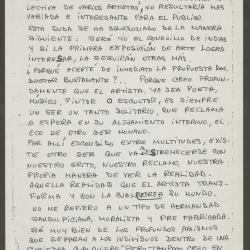 LECTIVA DE VARIOS ARTISTAS, NO RESULTARIA MAS
VARIADA E INTERESANTE PARA EL PUBLICO.
ESTA DUDA SE HA SOLUCIONADO DE LA MANERA
SIGUIENTE: SERE YO EL CONEJILLO DE INDIAS
Y SI LA PRIMERA EXPOSICION DE ARTE LOGRA
INTERESAR, LA SEGUIRAN OTRAS MAS.
¿PORQUE ACEPTE DE INMEDIATO LA PROPUESTA DEL
DOCTOR BUSTAMANTE?. PORQUE CREO PROFUN-
DAMENTE QUE EL ARTISTA, YA SEA POETA,
MUSICO, PINTOR O ESCULTOR, ES SIEMPRE
UN SER UN TANTO SOLITARIO, QUE RECLAMA
O ESPERA EN SU AISLAMIENTO INTERNO, EL
ECO DE OTRO SER HUMANO.
POR ALLI ESCONDIDO ENTRE MULTITUDES, EXIS-
TE OTRO SER QUE VA ESTREMECERSE CON
NUESTRO GRITO, NUESTRO RECLAMO, NUESTRA
PROPIA MANERA DE VER LA REALIDAD.
AQUELLA REALIDAD QUE EL ARTISTA TRANS-
FORMA Y CON LA CUAL CREA SU MUNDO.
NO ME REFIERO A UN TIPO DE HERMANDAD
SANSULPICIANA, MORALISTA Y PRE FABRICADA.
SE MUY BIEN DE LOS PROFUNDOS ABISMOS
QUE SEPARAN A LOS INDIVIDUOS DENTRO DE UNA